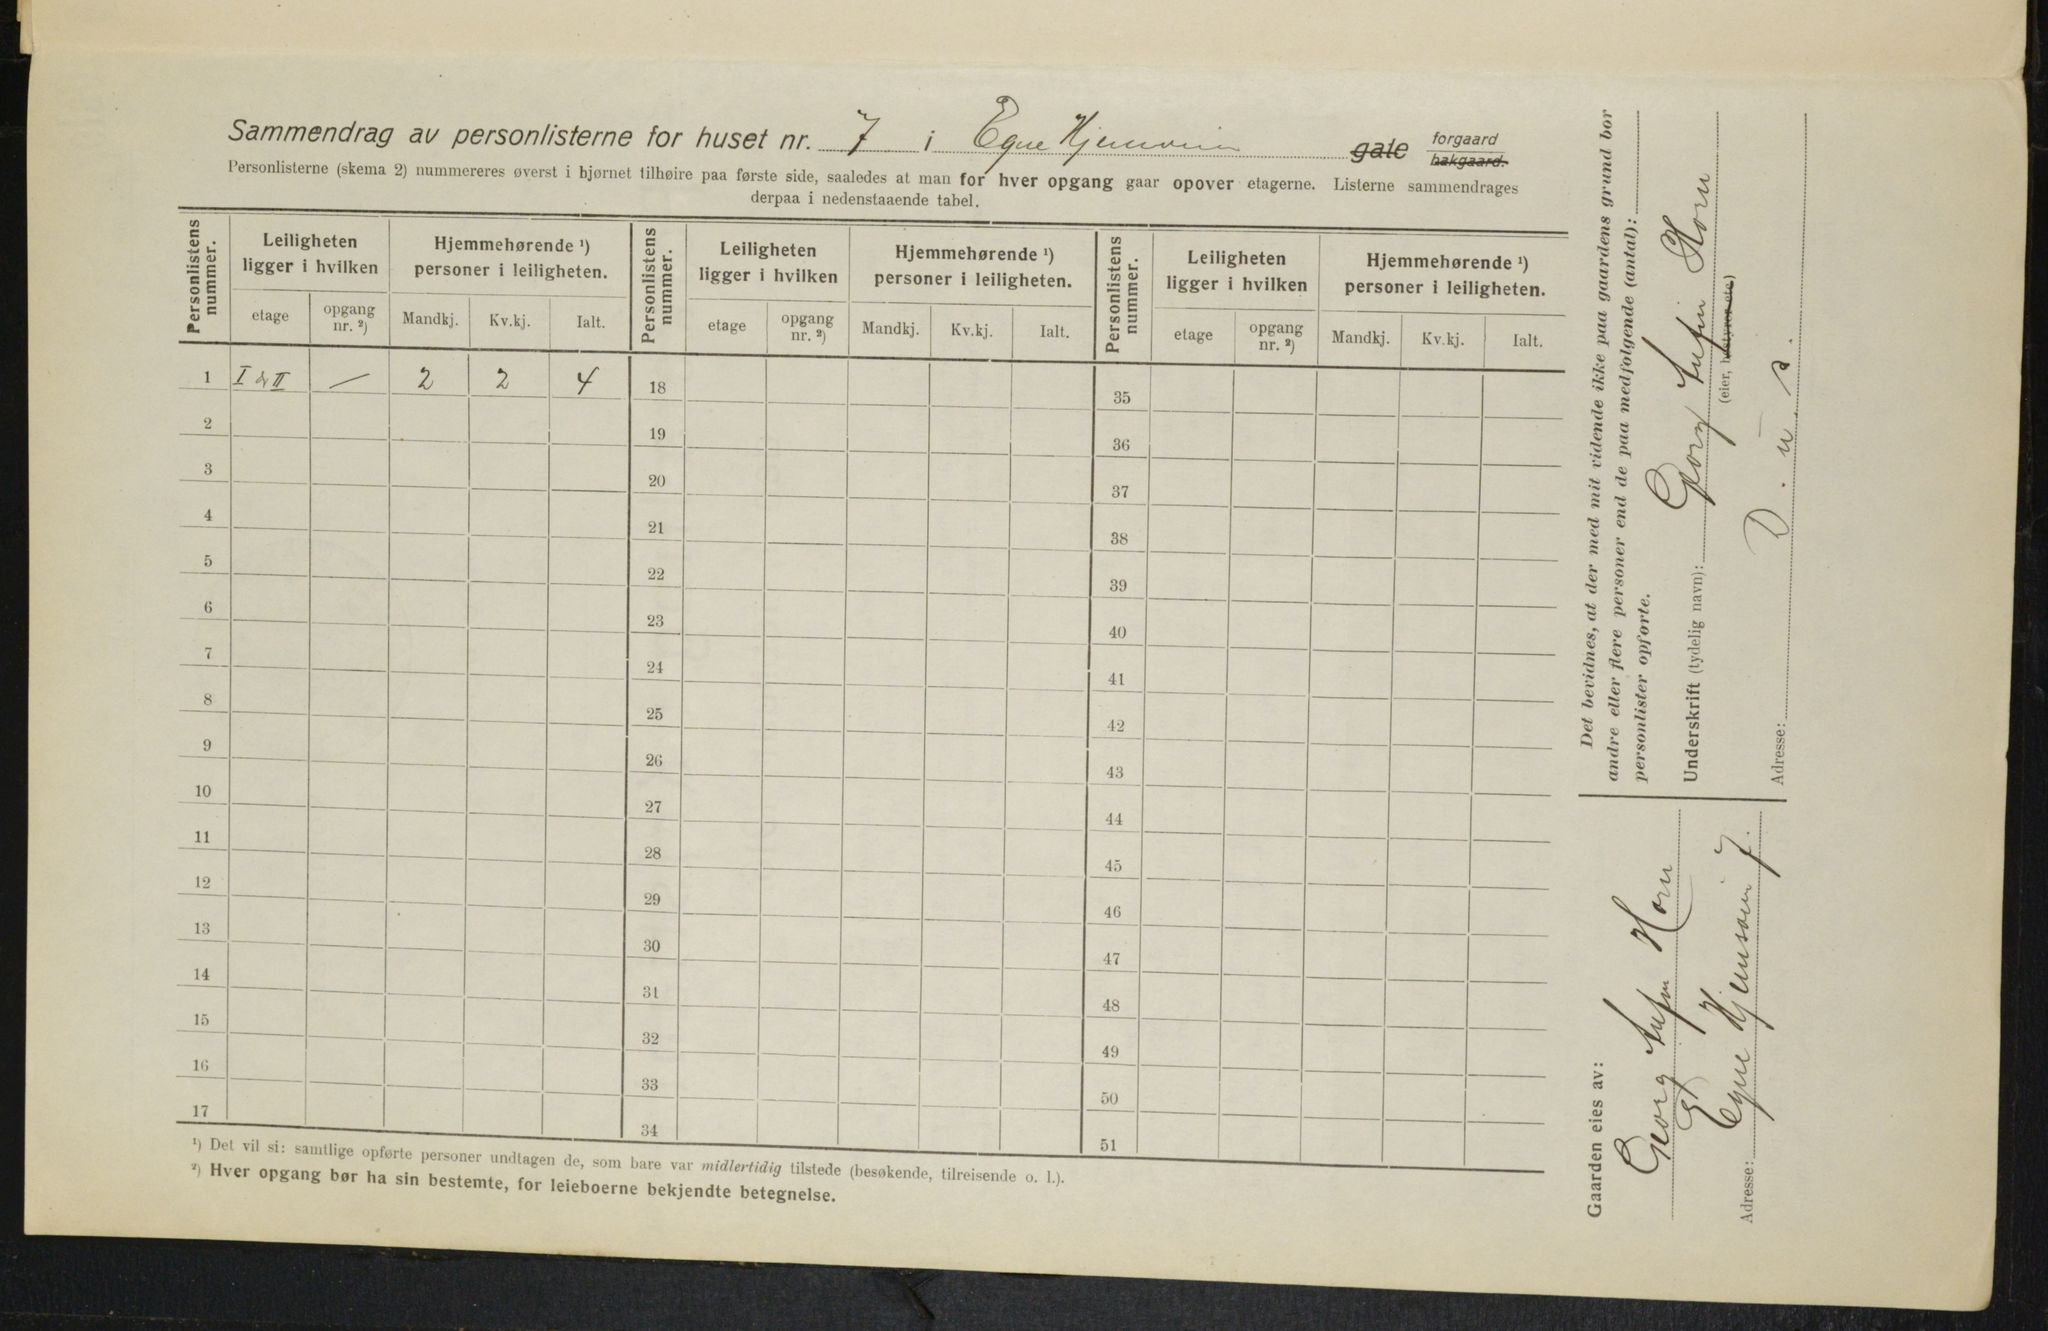 Sammendrag av personlisterne for huset nr. 7 i Egne Hjemvein gate forgaard bakgaard.
Personlisterne (skema 2) nummereres øverst i hjørnet tilhøire paa første side, saaledes at man for hver opgang gaar opover etagerne. Listerne sammendrages
derpaa i nedenstaaende tabel.
Personlistens nummer. Leiligheten ligger i hvilken Hjemmehørende ¹) personer i leiligheten. Personlistens nummer. Leiligheten ligger i hvilken Hjemmehørende ¹) personer i leiligheten. Personlistens nummer. Leiligheten ligger i hvilken Hjemmehørende ¹) personer i leiligheten.
etage opgang nr. ²) Mandkj. Kv.kj. Ialt. etage opgang nr. ²) Mandkj. Kv.kj. Ialt. etage opgang nr. ²) Mandkj. Kv.kj. Ialt.
1 I & II — 2 2 4 18 35
2 19 36
3 20 37
4 21 38
5 22 39
6 23 40
7 24 41
8 25 42
9 26 43
10 27 44
11 28 45
12 29 46
13 30 47
14 31 48
15 32 49
16 33 50
17 34 51
¹) Det vil si: samtlige opførte personer undtagen de, som bare var midlertidig tilstede (besøkende, tilreisende o. l.).
²) Hver opgang bør ha sin bestemte, for leieboerne bekjendte betegnelse.
Det bevidnes, at der med mit vidende ikke paa gaardens grund bor
andre eller flere personer end de paa medfølgende (antal):
personlister opførte.
Underskrift (tydelig navn): Georg Horn
(eier, bestyrer etc)
Adresse: D. u. s.
Gaarden eies av:
Georg Horn
Adresse: Egne Hjemsvei 7.